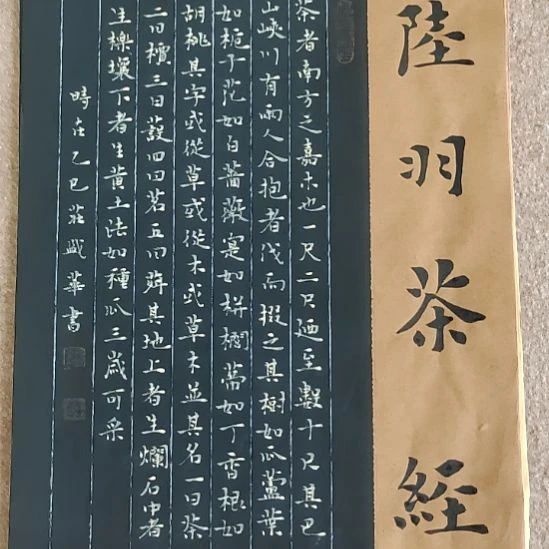 陸羽茶經
茶者南方之嘉木也一尺二尺廼至數十尺其巴
山峽川有兩人合抱者伐而掇之其樹如瓜蘆葉
如栀子花如白薔薇寔如栟櫚蒂如丁香根如
胡桃其字或從草或從木或草木並其名一曰茶
二曰檟三曰蔎四曰茗五曰荈其地上者生爛石中者
生櫟壤下者生黄土法如種瓜三歲可采
時在乙巳莊盛華書